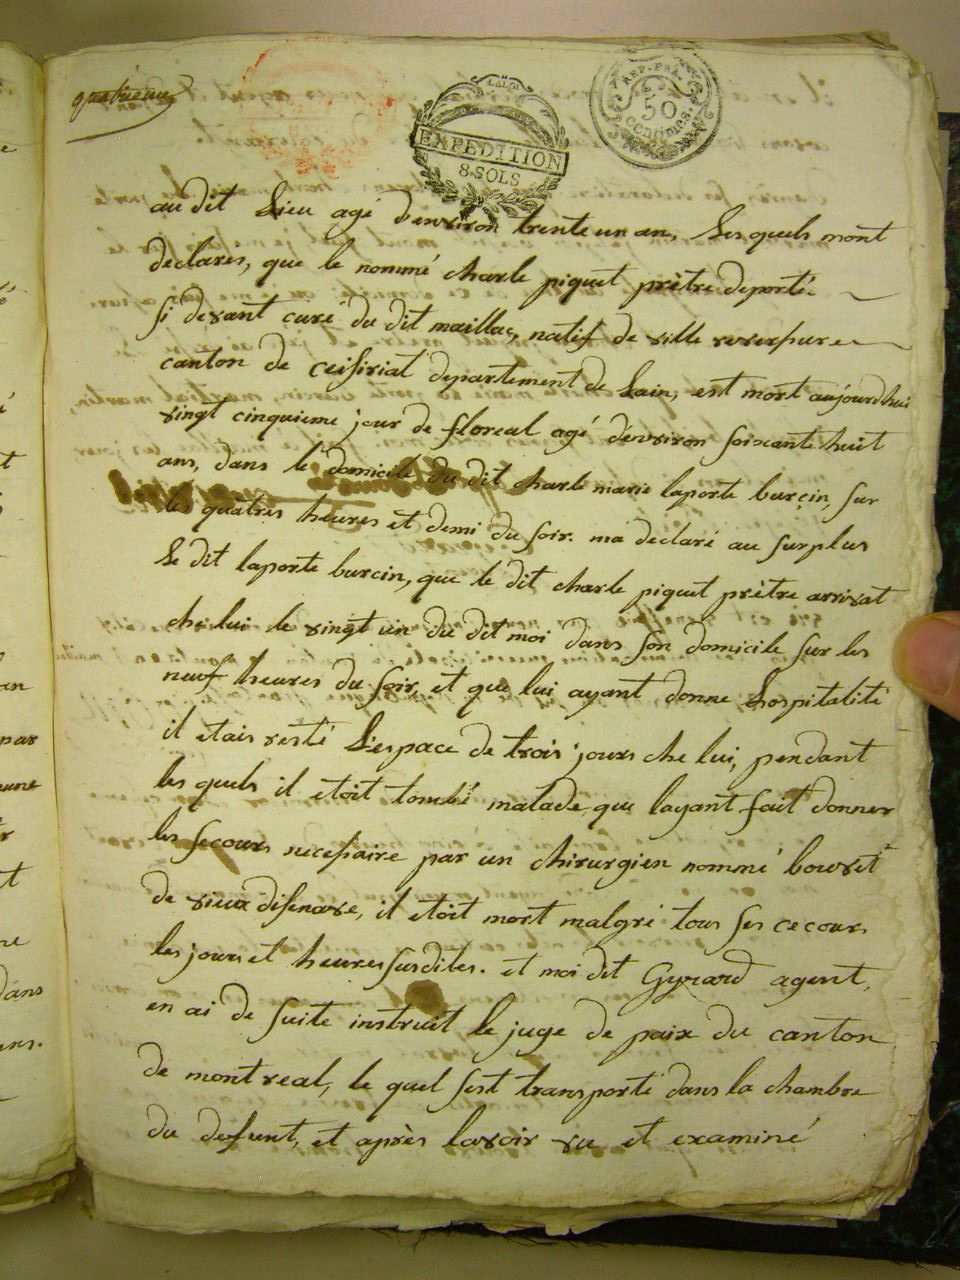 quatrieme
LALOI
EXPEDITION
8 SOLS
REP. FRA.
50
centimes.
au dit Lieu agé d'environ trente un an, Les quels mont
declares, que le nommé charle piquet prètre deporté
si devant curé du dit maillac, natif de ville reversure
canton de ceisiriat departement de Lain, est mort aujourdhui
vingt cinquieme jour de floreal agé d'environ soixante huit
ans, dans le domicile du dit charle marie laporte burcin, sur
les quatres heures et demi du soir. ma declaré au surplus
Le dit laporte burcin, que le dit charle piquet prètre arrivat
che lui le vingt un du dit moi dans son domicile sur les
neuf heures du soir, et que lui ayant donne Lhospitalité
il etais resté L'espace de trois jours che lui, pendant
les quels il etoit tombé malade, que layant fait donner
les secours necessaire par un chirurgien nommé bouvet
de vieux disenave, il etoit mort malgré tous ses cecours
les jours et heures susdites. et moi dit Gyrard agent,
en ai de suite instruit le juge de paix du canton
de montreal, le quel sest transporté dans la chambre
du defunt, et après lavoir vu et examiné